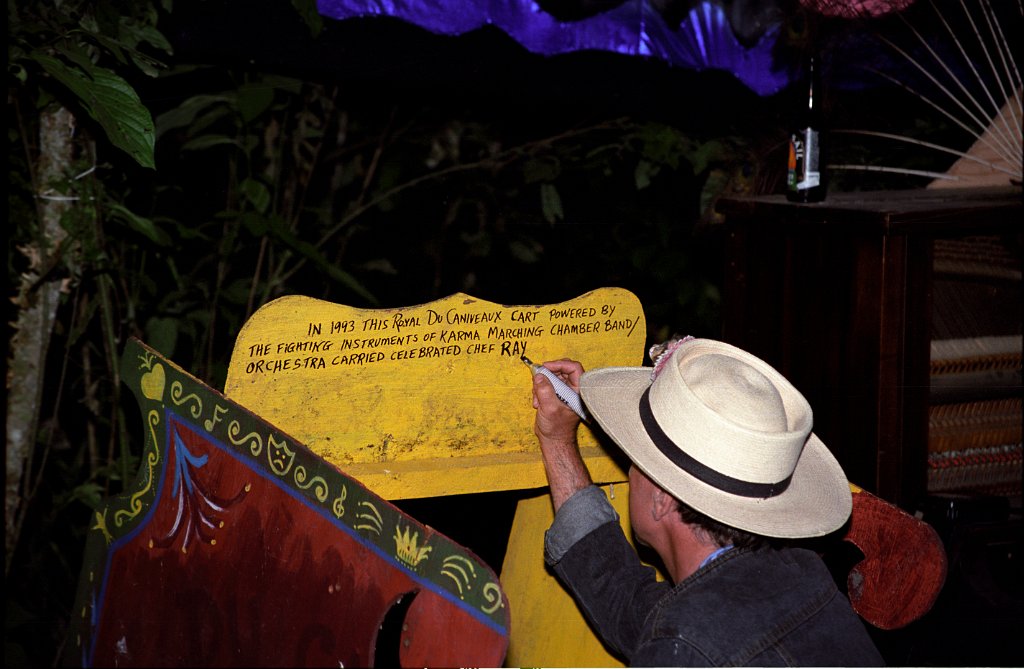 IN 1993 THIS ROYAL DU CANIVEAUX CART POWERED BY
THE FIGHTING INSTRUMENTS OF KARMA MARCHING CHAMBER BAND/
ORCHESTRA CARRIED CELEBRATED CHEF RAY